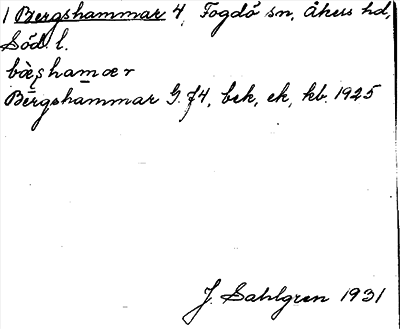 1 Bergshammar 4, Fogdö sn, Åkers hd,
Söd. l.
bæ̀ʂhamær
Bergshammar G. f4, bek, ek, kb. 1925
J. Sahlgren 1931